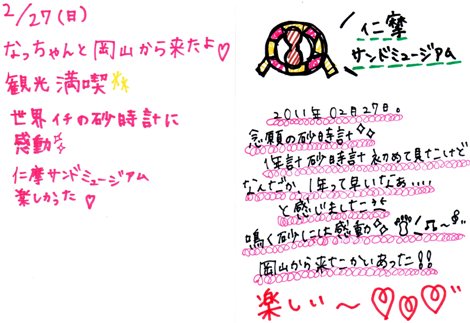 2/27(日)
なっちゃんと岡山から来たよ♡
観光満喫
世界イチの砂時計に
感動
仁摩サンドミュージアム
楽しかった♡
仁摩
サンドミュージアム
2011年02月27日。
念願の砂時計
1年計砂時計初めて見たけど
なんだか、1年って早いなぁ....
と感じました
鳴く砂には感動 ♪〜
岡山から来たかいあった!!
楽しい〜♡♡♡